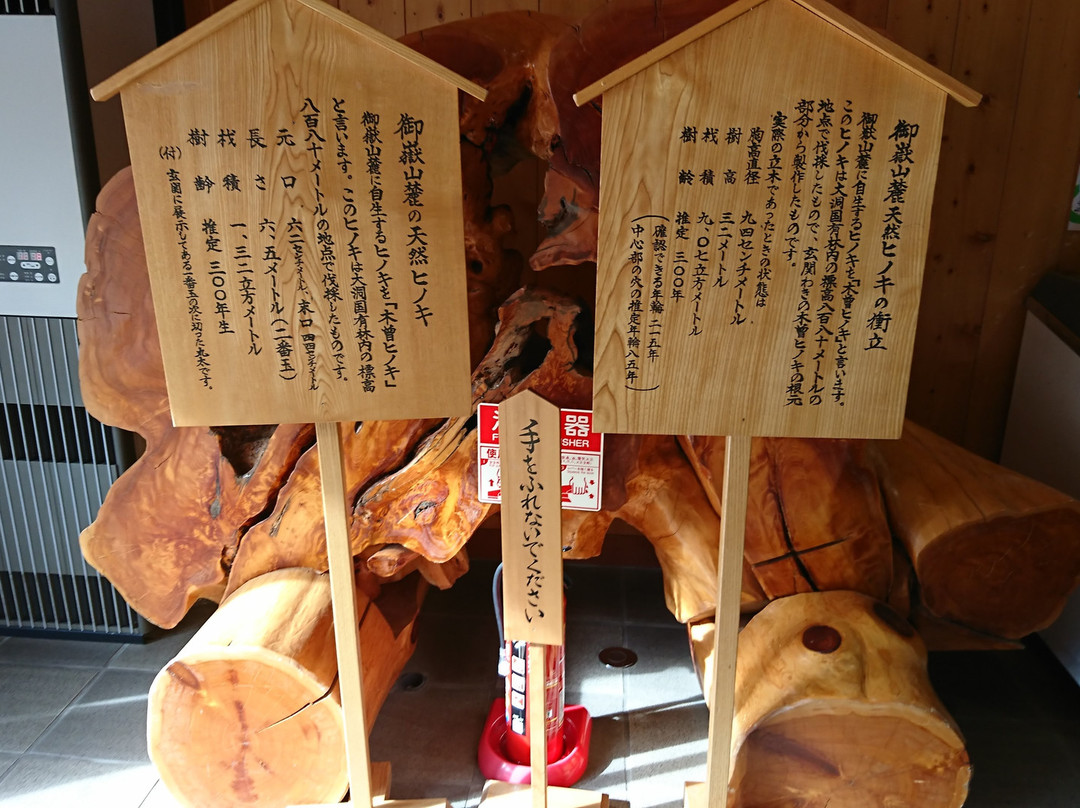 御嶽山麓天然ヒノキの衝立
御嶽山麓に自生するヒノキを「木曽ヒノキ」と言います。
このヒノキは大洞国有林内の標高八百八十メートルの
地点で伐採したもので、玄関わきの木曽ヒノキの根元
部分から製作したものです。
実際の立木であったときの状態は
胸高直径 九四センチメートル
樹高 三二メートル
材積 九、〇七立方メートル
樹齢 推定 三〇〇年
(確認できる年輪 二一五年)
(中心部の穴の推定年輪八五年)
御嶽山麓の天然ヒノキ
御嶽山麓に自生するヒノキを「木曽ヒノキ」
と言います。このヒノキは大洞国有林内の標高
八百八十メートルの地点で伐採したものです。
元口 六二センチメートル、末口 四四センチメートル
長さ 六、五メートル(二番玉)
材積 一、三二立方メートル
樹齢 推定 三〇〇年生
(付) 玄関に展示してある一番玉の次に切った丸太です。
手をふれないでください
器
SHER
使